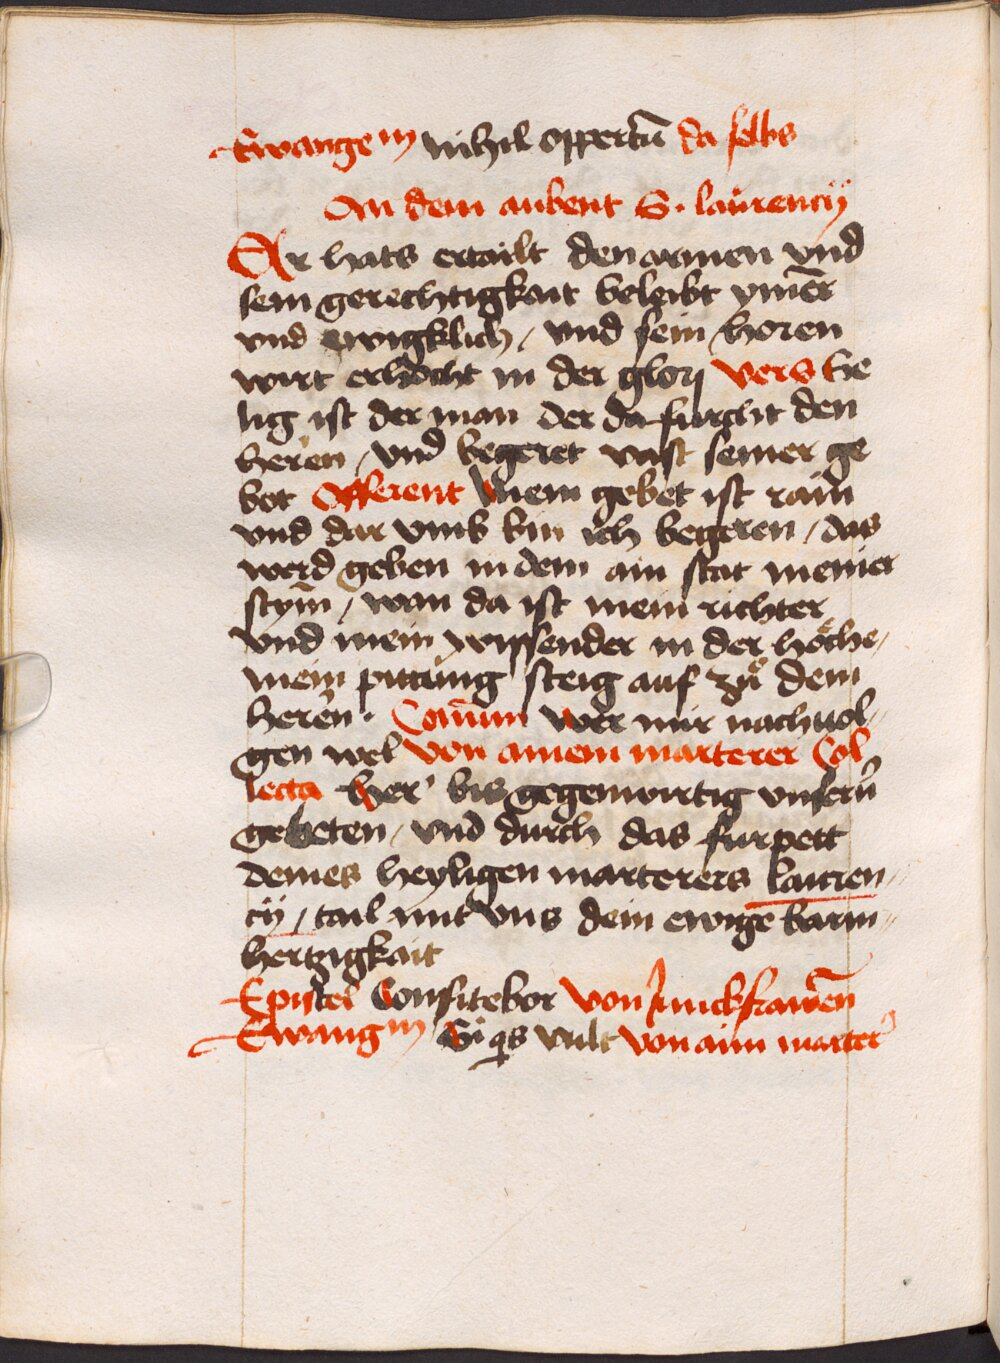 Ewangem nihil oppertū da selbs
An dem aubent S. laurencÿ
Er hats ertailt den armen vnd
sein gerechtigkait beleibt ymēr
vnd ewigklich / vnd sein horen
wirt erhöcht in der glorj vers Se
lig ist der man der da furcht den
heren / vnd begeret vast seiner ge
bot Offerent Mein gebet ist rain
vnd dar vmb bin ich begeren / das
werd geben in dem ain stat meiner
stym̄ / wan da ist mein richter
vnd mein wissender in der höche /
mein pittung steig auf zů dem
heren. Com̄un wer mir nachuol-
gen wel von ainem marterer Col
lecta Her bis gegenwirtig vnsern̄
gebeten / vnd durch das furpett
deines heyligen marterers lauren-
cÿ / tail mit vns dein ewige barm-
hertzigkait
Epistel Confitebor von Junckfrawēn
Ewangm Si qs vult von aim marter